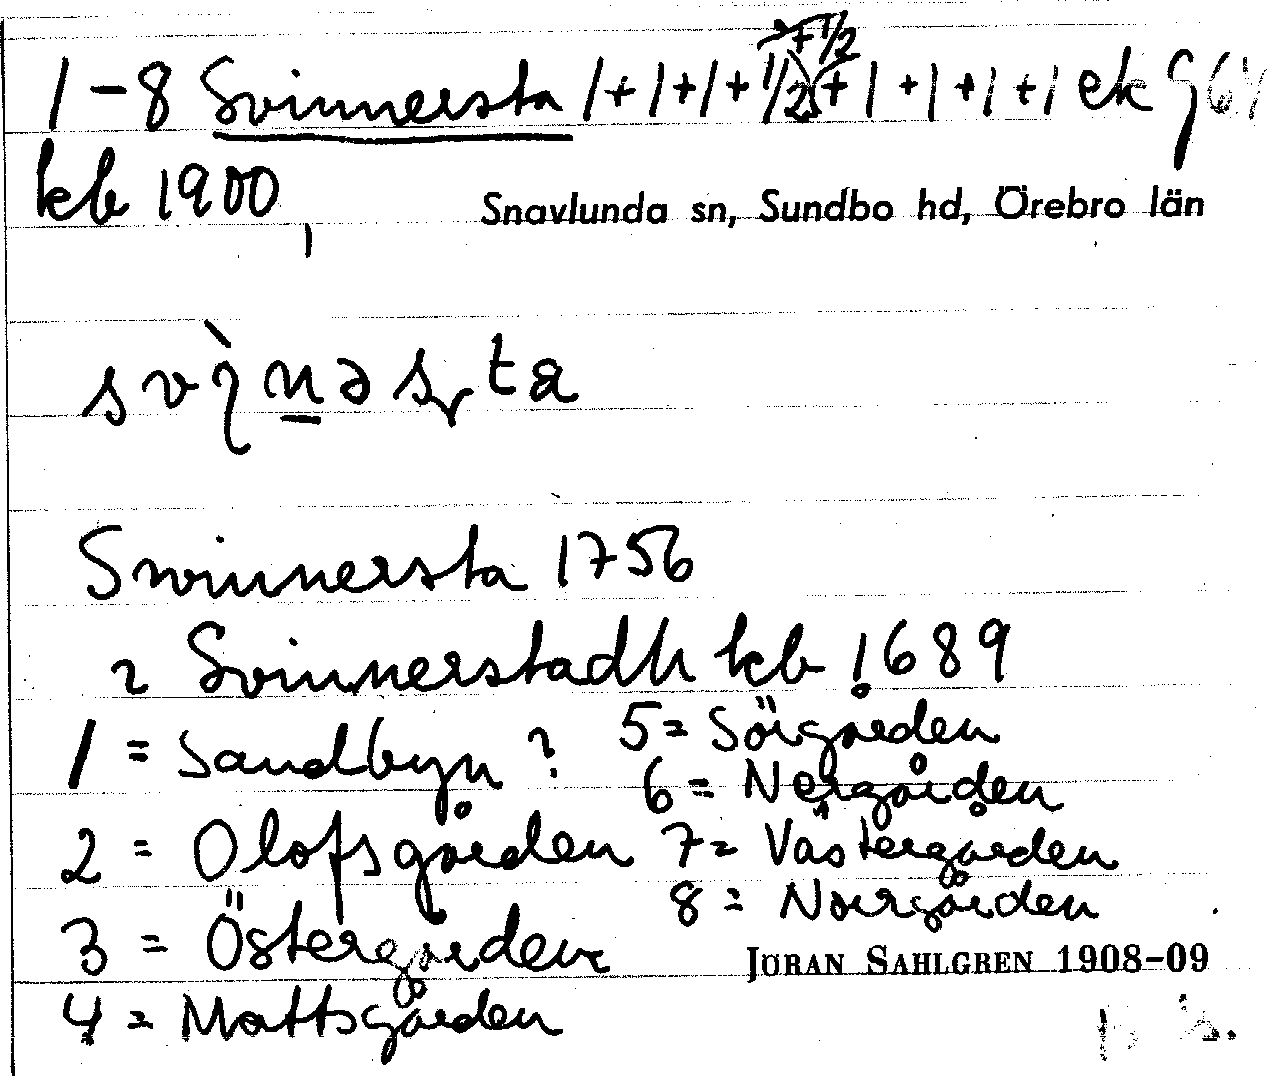 1-8 Svinnersta 1+1+1+1/2+1+1+1+1 ek
kb 1900
Snavlunda sn, Sundbo hd, Örebro län
Svinnersta 1756
2 Svinnerstadh kb 1689
1 = Sandbyn ? 5 = Sörgården
6 = Nergården
2 = Olofsgården 7 = Västergården
8 = Norrgården
3 = Östergården
JÖRAN SAHLGREN 1908-09
4 = Mattsgården